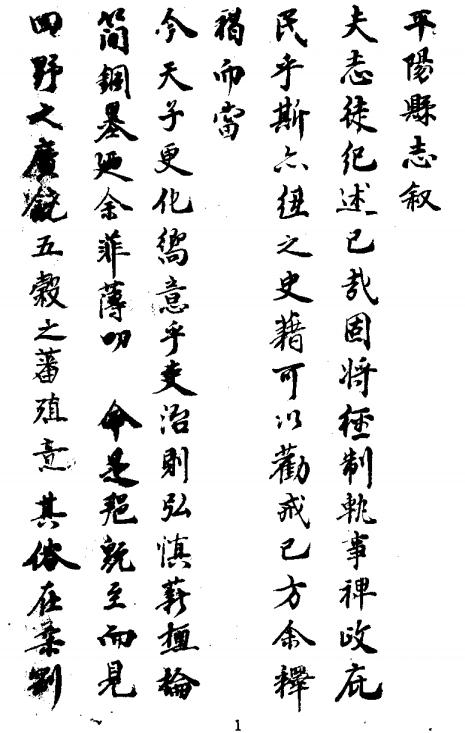 平陽縣志叙
夫志徒紀述已哉固將經制軌事裨政庇
民乎斯亦之史藉可以勸戒已方余釋
褐而當
今天子更化嚮意乎吏治則弘慎薪槱掄
簡銅墨迺余菲薄叨 命是邑既至而見
田野之廣饒五穀之蕃殖意其俗在柔
1